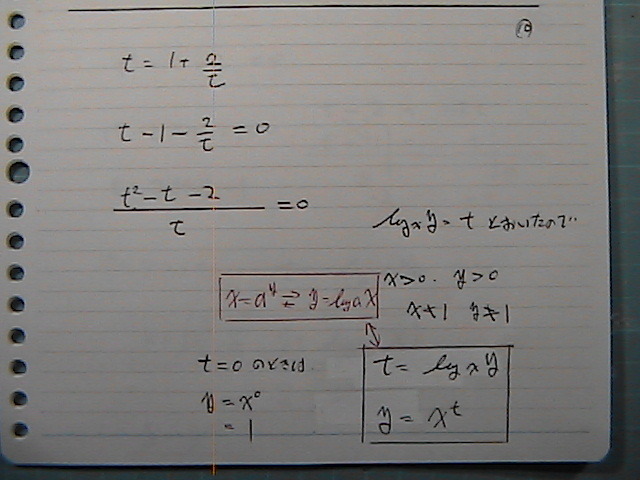 ⑲
t = 1 + 2/t
t - 1 - 2/t = 0
(t² - t - 2)/t = 0
log x y = t とおいたので
x = a^y ⇄ y = log a x
x > 0 . y > 0
x ≠ 1 y ≠ 1
t = 0 のときは
y = x⁰
= 1
t = log x y
y = x^t